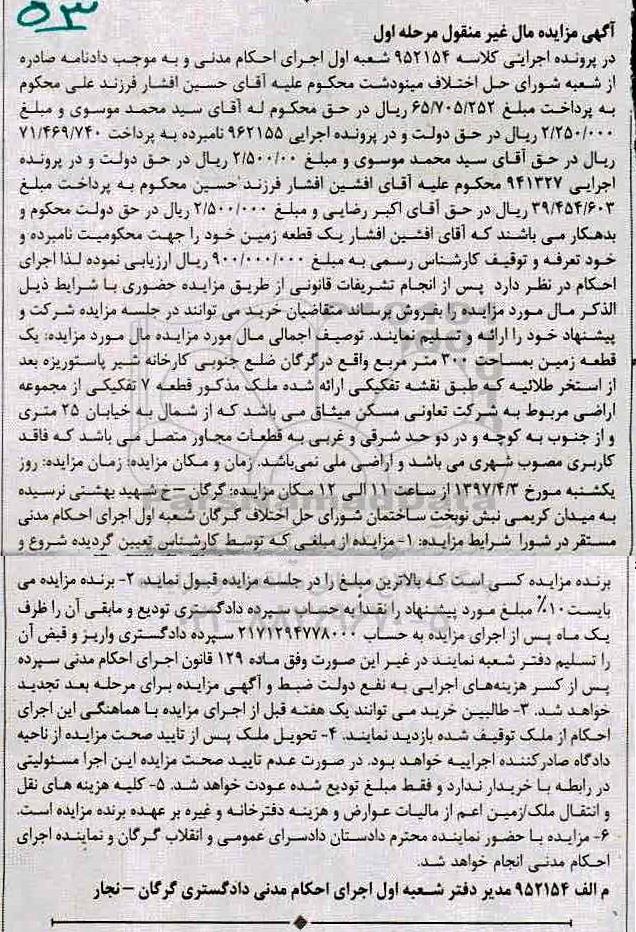 ۵۳
آگهی مزایده مال غیر منقول مرحله اول
در پرونده اجرایی کلاسه ۹۵۲۱۵۴ شعبه اول اجرای احکام مدنی و به موجب دادنامه صادره
از شعبه شورای حل اختلاف مینودشت محکوم علیه آقای حسین افشار فرزند علی محکوم
به پرداخت مبلغ ۶۵/۷۰۵/۲۵۲ ریال در حق محکوم له آقای سید محمد موسوی و مبلغ
۲/۲۵۰/۰۰۰ ریال در حق دولت و در پرونده اجرایی ۹۶۲۱۵۵ نامبرده به پرداخت ۷۱/۴۶۹/۷۴۰
ریال در حق آقای سید محمد موسوی و مبلغ ۲/۵۰۰/۰۰ ریال در حق دولت و در پرونده
اجرایی ۹۴۱۳۲۷ محکوم علیه آقای افشین افشار فرزند حسین محکوم به پرداخت مبلغ
۳۹/۴۵۴/۶۰۳ ریال در حق آقای اکبر رضایی و مبلغ ۲/۵۰۰/۰۰۰ ریال در حق دولت محکوم و
بدهکار می باشند که آقای افشین افشار یک قطعه زمین خود را جهت محکومیت نامبرده و
خود تعرفه و توقیف کارشناس رسمی به مبلغ ۹۰۰/۰۰۰/۰۰۰ ریال ارزیابی نموده لذا اجرای
احکام در نظر دارد پس از انجام تشریفات قانونی از طریق مزایده حضوری با شرایط ذیل
الذکر مال مورد مزایده را بفروش برساند متقاضیان خرید می توانند در جلسه مزایده شرکت و
پیشنهاد خود را ارائه و تسلیم نمایند. توصیف اجمالی مال مورد مزایده مال مورد مزایده: یک
قطعه زمین بمساحت ۳۰۰ متر مربع واقع در گرگان ضلع جنوبی کارخانه شیر پاستوریزه بعد
از استخر طلائیه که طبق نقشه تفکیکی ارائه شده ملک مذکور قطعه ۷ تفکیکی از مجموعه
اراضی مربوط به شرکت تعاونی مسکن میثاق می باشد که از شمال به خیابان ۲۵ متری
و از جنوب به کوچه و در دو حد شرقی و غربی به قطعات مجاور متصل می باشد که فاقد
کاربری مصوب شهری می باشد و اراضی ملی نمی‌باشد. زمان و مکان مزایده: زمان مزایده: روز
یکشنبه مورخ ۱۳۹۷/۴/۳ از ساعت ۱۱ الی ۱۲ مکان مزایده: گرگان – خ شهید بهشتی نرسیده
به میدان کریمی نبش نوبخت ساختمان شورای حل اختلاف گرگان شعبه اول اجرای احکام مدنی
مستقر در شورا شرایط مزایده: ۱- مزایده از مبلغی که توسط کارشناس تعیین گردیده شروع و
برنده مزایده کسی است که بالاترین مبلغ را در جلسه مزایده قبول نماید. ۲- برنده مزایده می
بایست ۱۰٪ مبلغ مورد پیشنهاد را نقداً به حساب سپرده دادگستری تودیع و مابقی آن را ظرف
یک ماه پس از اجرای مزایده به حساب ۲۱۷۱۲۹۴۷۷۸۰۰۰ سپرده دادگستری واریز و قبض آن
را تسلیم دفتر شعبه نمایند در غیر این صورت وفق ماده ۱۲۹ قانون اجرای احکام مدنی سپرده
پس از کسر هزینه‌های اجرایی به نفع دولت ضبط و آگهی مزایده برای مرحله بعد تجدید
خواهد شد. ۳- طالبین خرید می توانند یک هفته قبل از اجرای مزایده با هماهنگی این اجرای
احکام از ملک توقیف شده بازدید نمایند. ۴- تحویل ملک پس از تایید صحت مزایده از ناحیه
دادگاه صادرکننده اجراییه خواهد بود. در صورت عدم تایید صحت مزایده این اجرا مسئولیتی
در رابطه با خریدار ندارد و فقط مبلغ تودیع شده عودت خواهد شد. ۵- کلیه هزینه های نقل
و انتقال ملک/زمین اعم از مالیات عوارض و هزینه دفترخانه و غیره بر عهده برنده مزایده است.
۶- مزایده با حضور نماینده محترم دادستان دادسرای عمومی و انقلاب گرگان و نماینده اجرای
احکام مدنی انجام خواهد شد.
م الف ۹۵۲۱۵۴ مدیر دفتر شعبه اول اجرای احکام مدنی دادگستری گرگان – نجار